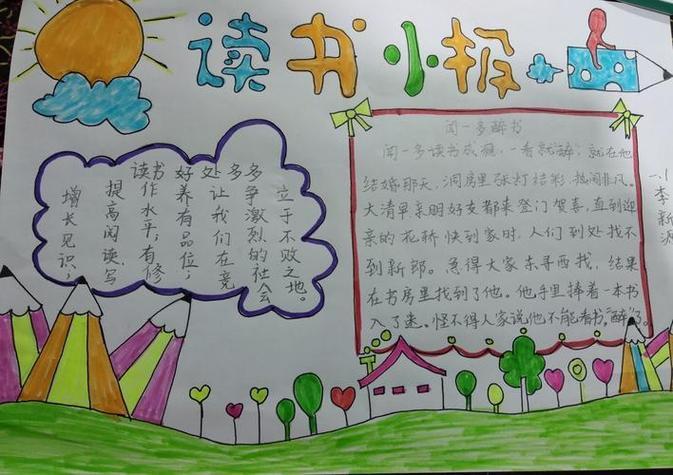 读书小报
读书好处多多
增长见识,
提高阅读、写
作水平;有修
养有品位;
让我们在竞
争激烈的社会
立于不败之地。
闻一多醉书
闻一多读书成瘾,一看就“醉”,就在他
结婚那天,洞房里张灯结彩,热闹非凡。
大清早亲朋好友都来登门贺喜,直到迎
亲的花轿快到家时,人们到处找不
到新郎。急得大家东寻西找,结果
在书房里找到了他。他手里捧着一本书
入了迷。怪不得人家说他不能看书,“醉”了。
李
新
源